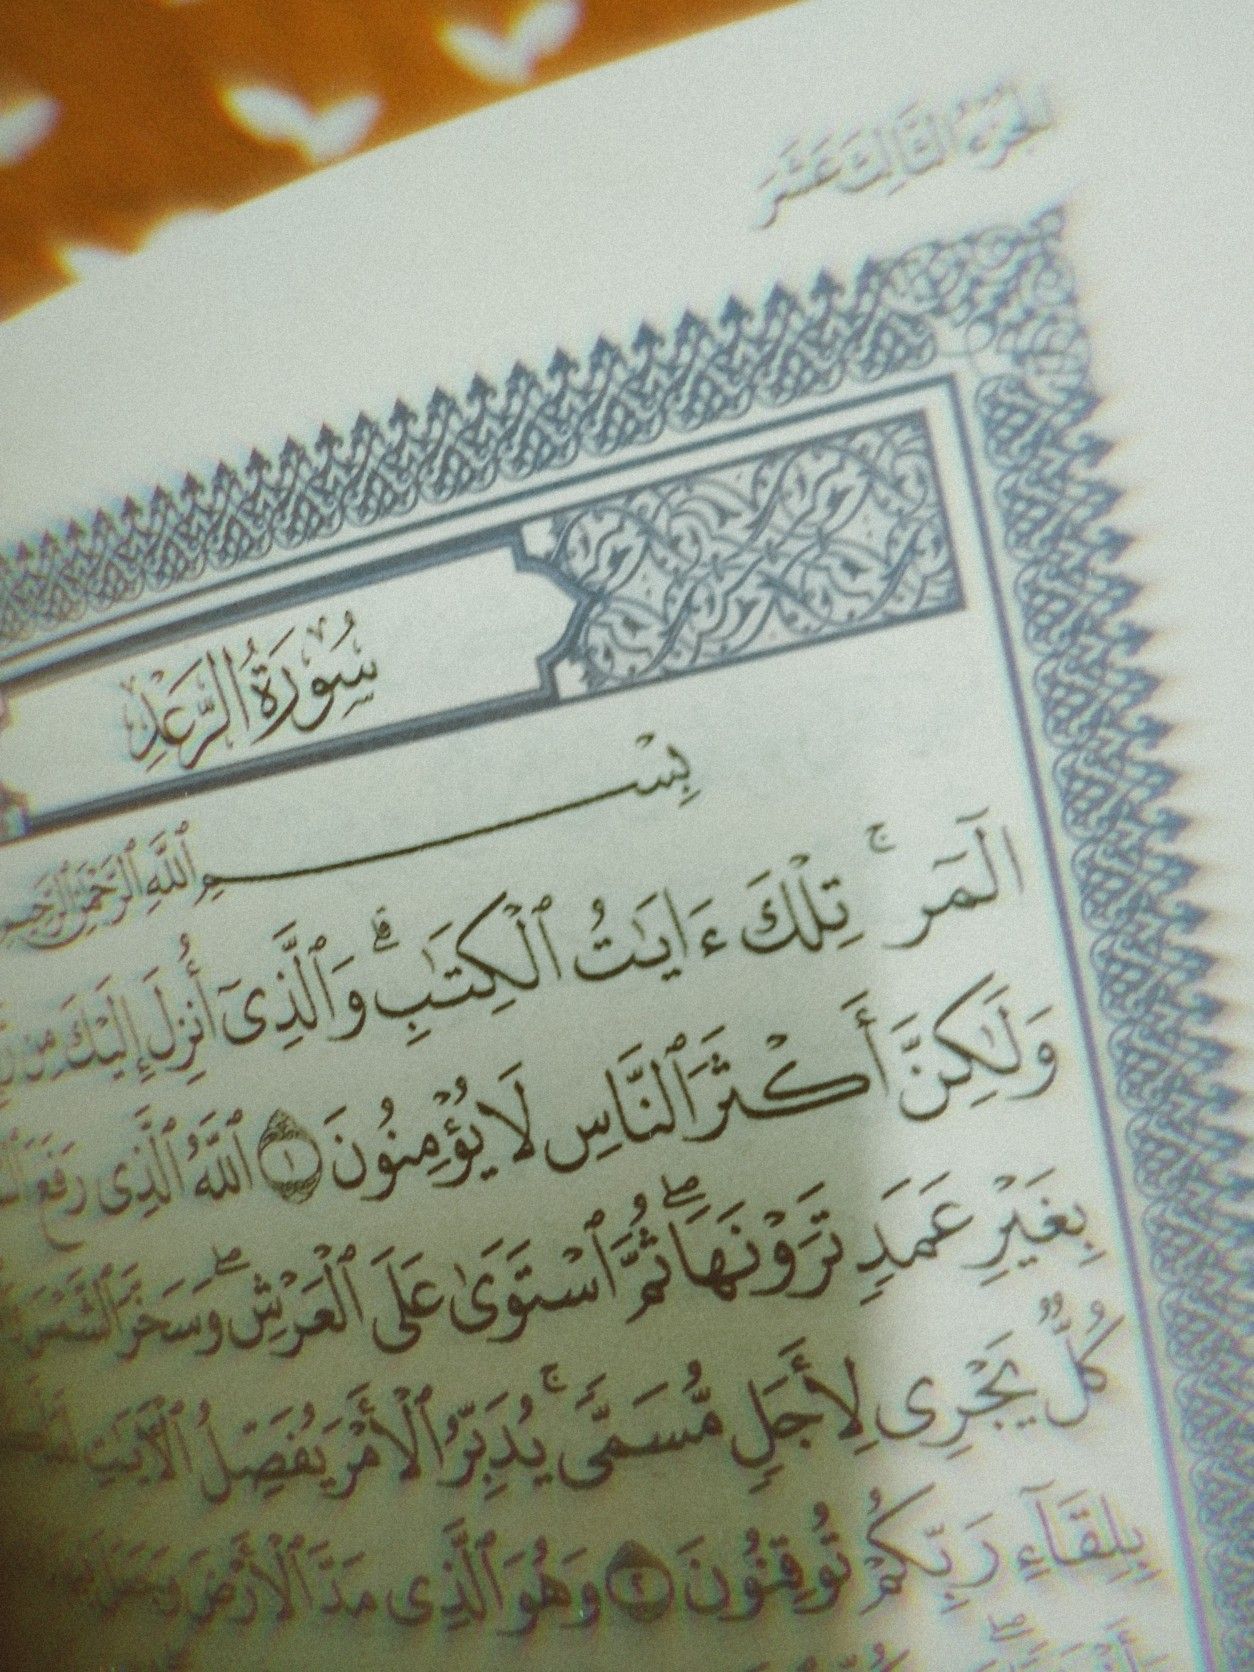 الجزء الثالث عشر
سُورَةُ الرَّعۡدِ
بِسۡمِ ٱللَّهِ ٱلرَّحۡمَٰنِ ٱلرَّحِيمِ
الٓمٓرۚ تِلۡكَ ءَايَٰتُ ٱلۡكِتَٰبِۗ وَٱلَّذِيٓ أُنزِلَ إِلَيۡكَ مِن
وَلَٰكِنَّ أَكۡثَرَ ٱلنَّاسِ لَا يُؤۡمِنُونَ ١ ٱللَّهُ ٱلَّذِي رَفَعَ
بِغَيۡرِ عَمَدٖ تَرَوۡنَهَاۖ ثُمَّ ٱسۡتَوَىٰ عَلَى ٱلۡعَرۡشِۖ وَسَخَّرَ ٱلشَّمۡسَ
كُلّٞ يَجۡرِي لِأَجَلٖ مُّسَمّٗىۚ يُدَبِّرُ ٱلۡأَمۡرَ يُفَصِّلُ ٱلۡأٓيَٰتِ
بِلِقَآءِ رَبِّكُمۡ تُوقِنُونَ ٢ وَهُوَ ٱلَّذِي مَدَّ ٱلۡأَرۡضَ وَجَعَلَ